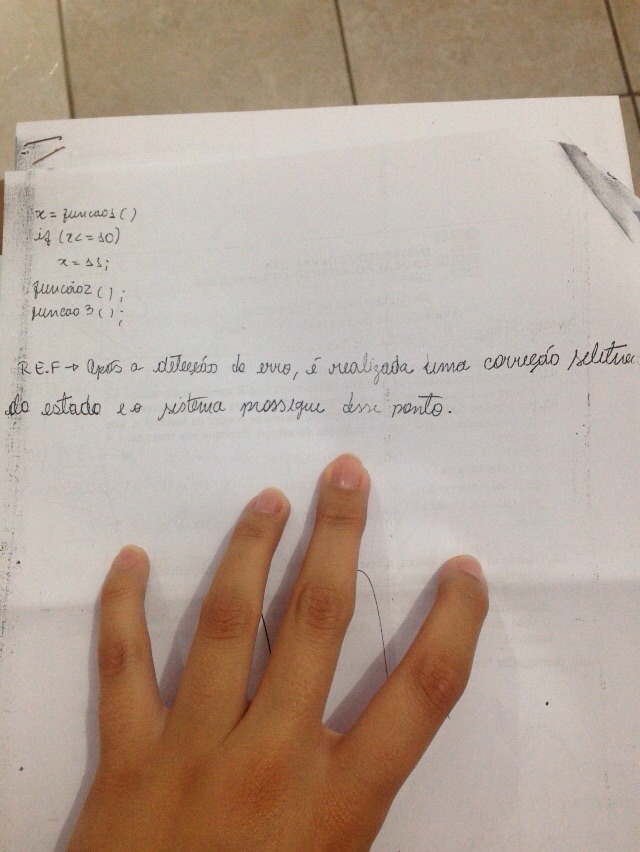 x = funcao1()
if (x <= 10)
x = 11;
funcao2();
funcao3();
R.E.F → Após a detecção do erro, é realizada uma correção seletiva
do estado e o sistema prossegue desse ponto.